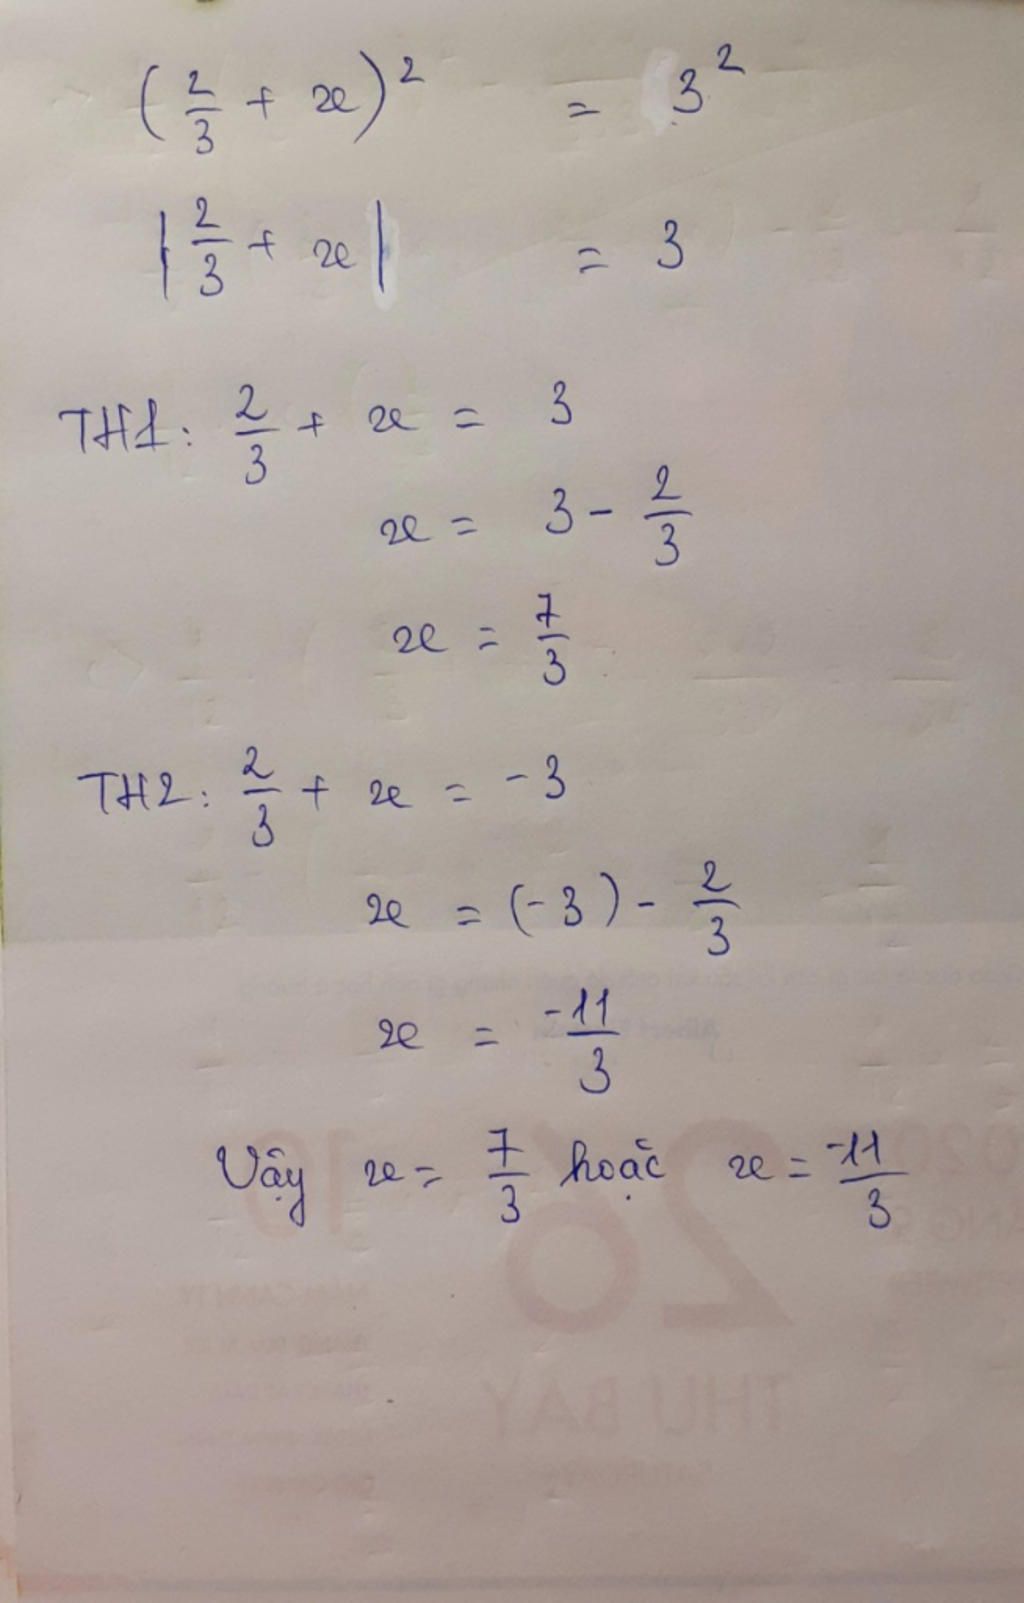 (2/3 + x)² = 3²
|2/3 + x| = 3
TH1: 2/3 + x = 3
x = 3 - 2/3
x = 7/3
TH2: 2/3 + x = -3
x = (-3) - 2/3
x = -11/3
Vậy x = 7/3 hoặc x = -11/3
26
THỨ BẢY